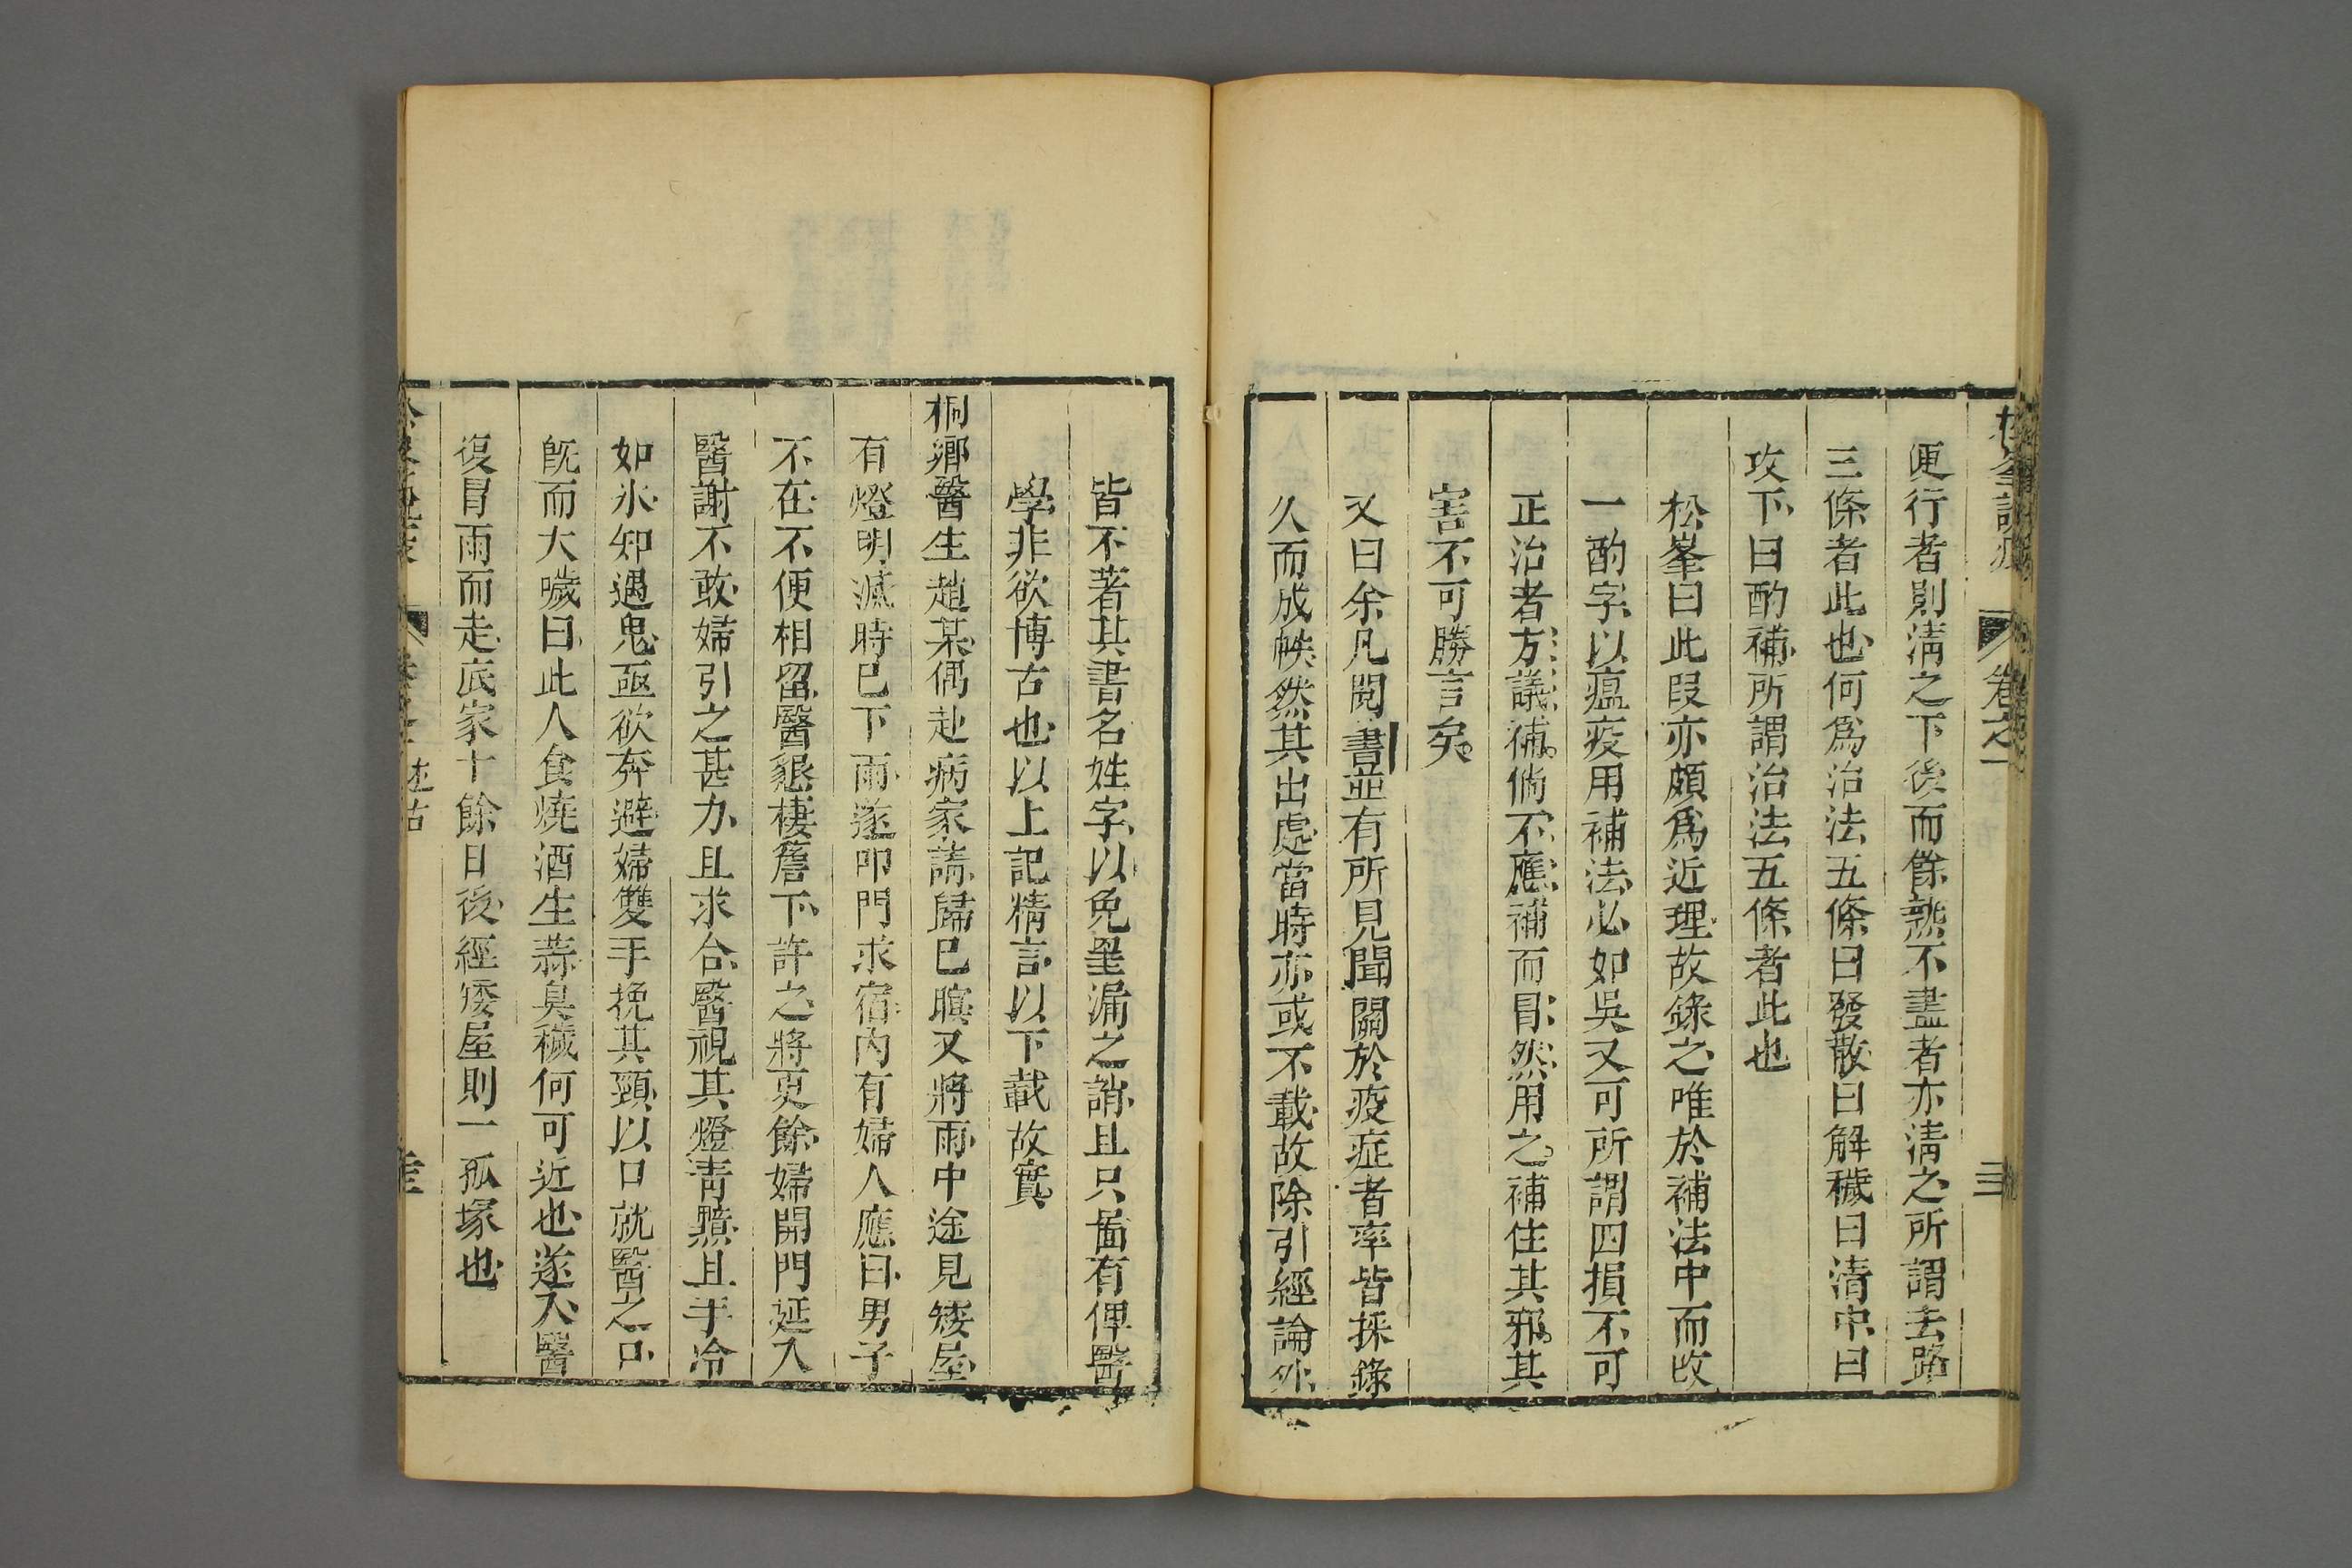 松峯說疫 卷之一
便行者則淸之下後而餘熱不盡者亦淸之所謂去路
三條者此也何爲治法五條曰發散曰解穢曰清中曰
攻下曰酌補所謂治法五條者此也
松峯曰此段亦頗爲近理故錄之唯於補法中而改
一酌字以瘟疫用補法必如吳又可所謂四損不可
正治者方議補倘不應補而冒然用之補住其邪其
害不可勝言矣
又曰余凡閱書並有所見聞關於疫症者率皆採錄
久而成帙然其出處當時亦或不載故除引經論外
皆不著其書名姓字以免罣漏之誚且只啚有俾醫
學非欲博古也以上記精言以下載故實
桐鄉醫生趙某偶赴病家請歸已暝又將雨中途見矮屋
有燈明滅時已下雨遂叩門求宿內有婦人應曰男子
不在不便相留醫懇棲簷下許之將更餘婦開門延入
醫謝不敢婦引之甚力且求合醫視其燈靑黯且手冷
如氷知遇鬼亟欲奔避婦雙手挽其頸以口就醫之口
旣而大噦曰此人食燒酒生蒜臭穢何可近也遂入醫
復冒雨而走底家十餘日後經矮屋則一孤塚也
述古